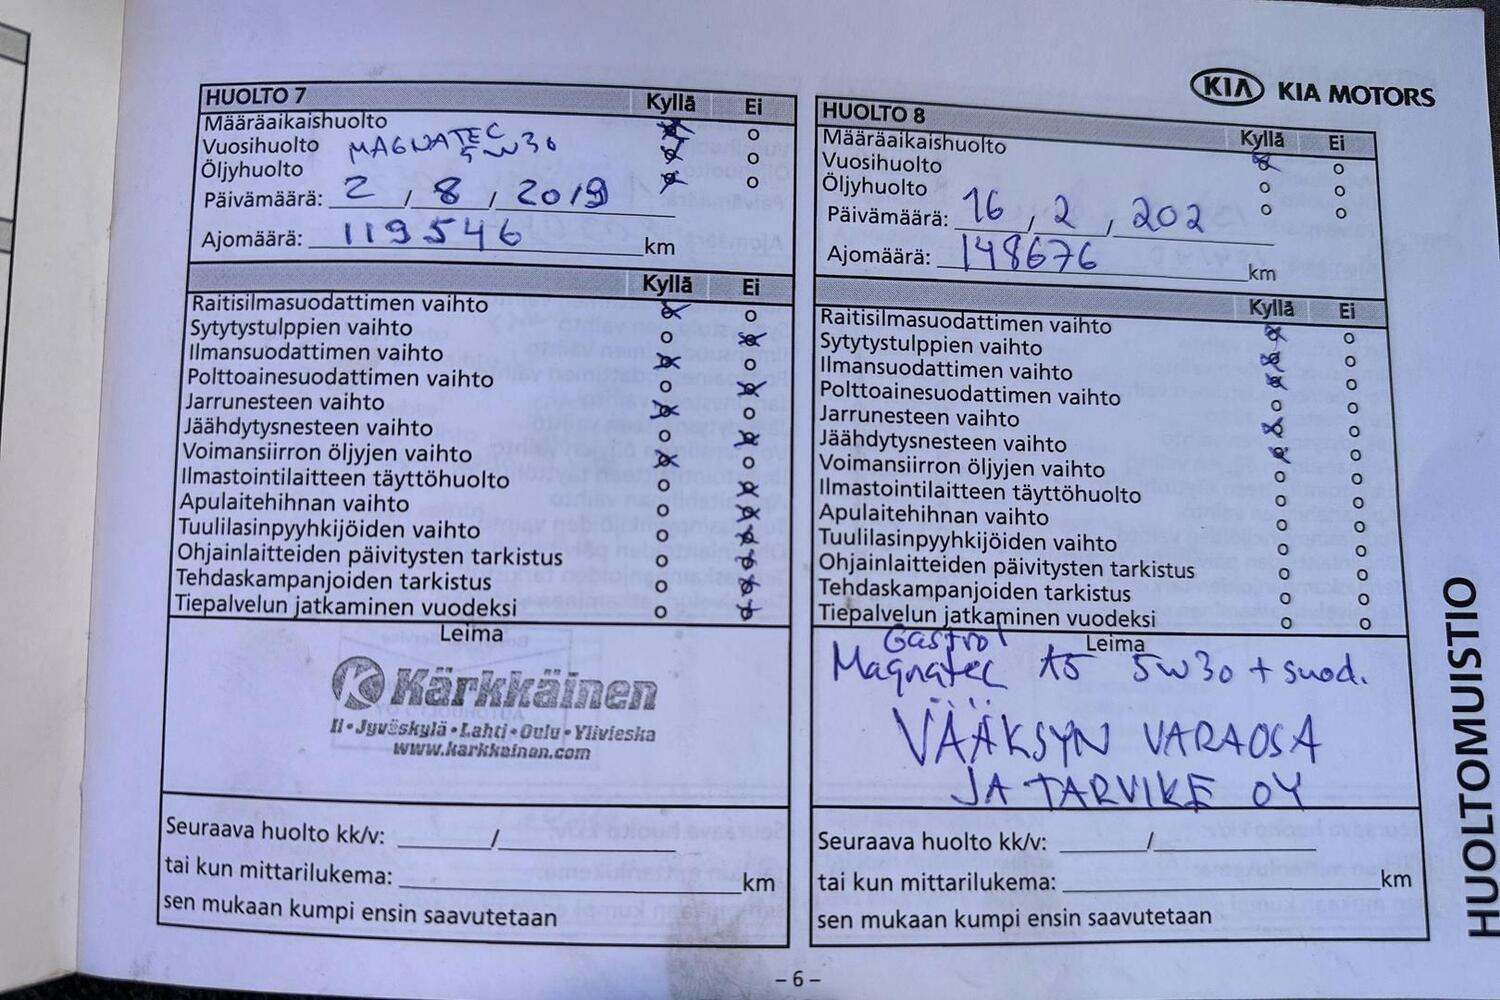 KIA KIA MOTORS
HUOLTO 7 Kyllä Ei
Määräaikaishuolto
Vuosihuolto MAGNATEC
Öljyhuolto 5W30
Päivämäärä: 2 / 8 / 2019
Ajomäärä: 119546 km
Kyllä Ei
Raitisilmasuodattimen vaihto
Sytytystulppien vaihto
Ilmansuodattimen vaihto
Polttoainesuodattimen vaihto
Jarrunesteen vaihto
Jäähdytysnesteen vaihto
Voimansiirron öljyjen vaihto
Ilmastointilaitteen täyttöhuolto
Apulaitehihnan vaihto
Tuulilasinpyyhkijöiden vaihto
Ohjainlaitteiden päivitysten tarkistus
Tehdaskampanjoiden tarkistus
Tiepalvelun jatkaminen vuodeksi
Leima
Kärkkäinen
Ii • Jyväskylä • Lahti • Oulu • Ylivieska
www.karkkainen.com
Seuraava huolto kk/v: /
tai kun mittarilukema: km
sen mukaan kumpi ensin saavutetaan
HUOLTO 8 Kyllä Ei
Määräaikaishuolto
Vuosihuolto
Öljyhuolto
Päivämäärä: 16 / 2 , 202
Ajomäärä: 148676 km
Kyllä Ei
Raitisilmasuodattimen vaihto
Sytytystulppien vaihto
Ilmansuodattimen vaihto
Polttoainesuodattimen vaihto
Jarrunesteen vaihto
Jäähdytysnesteen vaihto
Voimansiirron öljyjen vaihto
Ilmastointilaitteen täyttöhuolto
Apulaitehihnan vaihto
Tuulilasinpyyhkijöiden vaihto
Ohjainlaitteiden päivitysten tarkistus
Tehdaskampanjoiden tarkistus
Tiepalvelun jatkaminen vuodeksi
Leima
Gastrol
Magnatec A5 5W30 + suod.
VÄÄKSYN VARAOSA
JA TARVIKE OY
Seuraava huolto kk/v: /
tai kun mittarilukema: km
sen mukaan kumpi ensin saavutetaan
HUOLTOMUISTIO
– 6 –